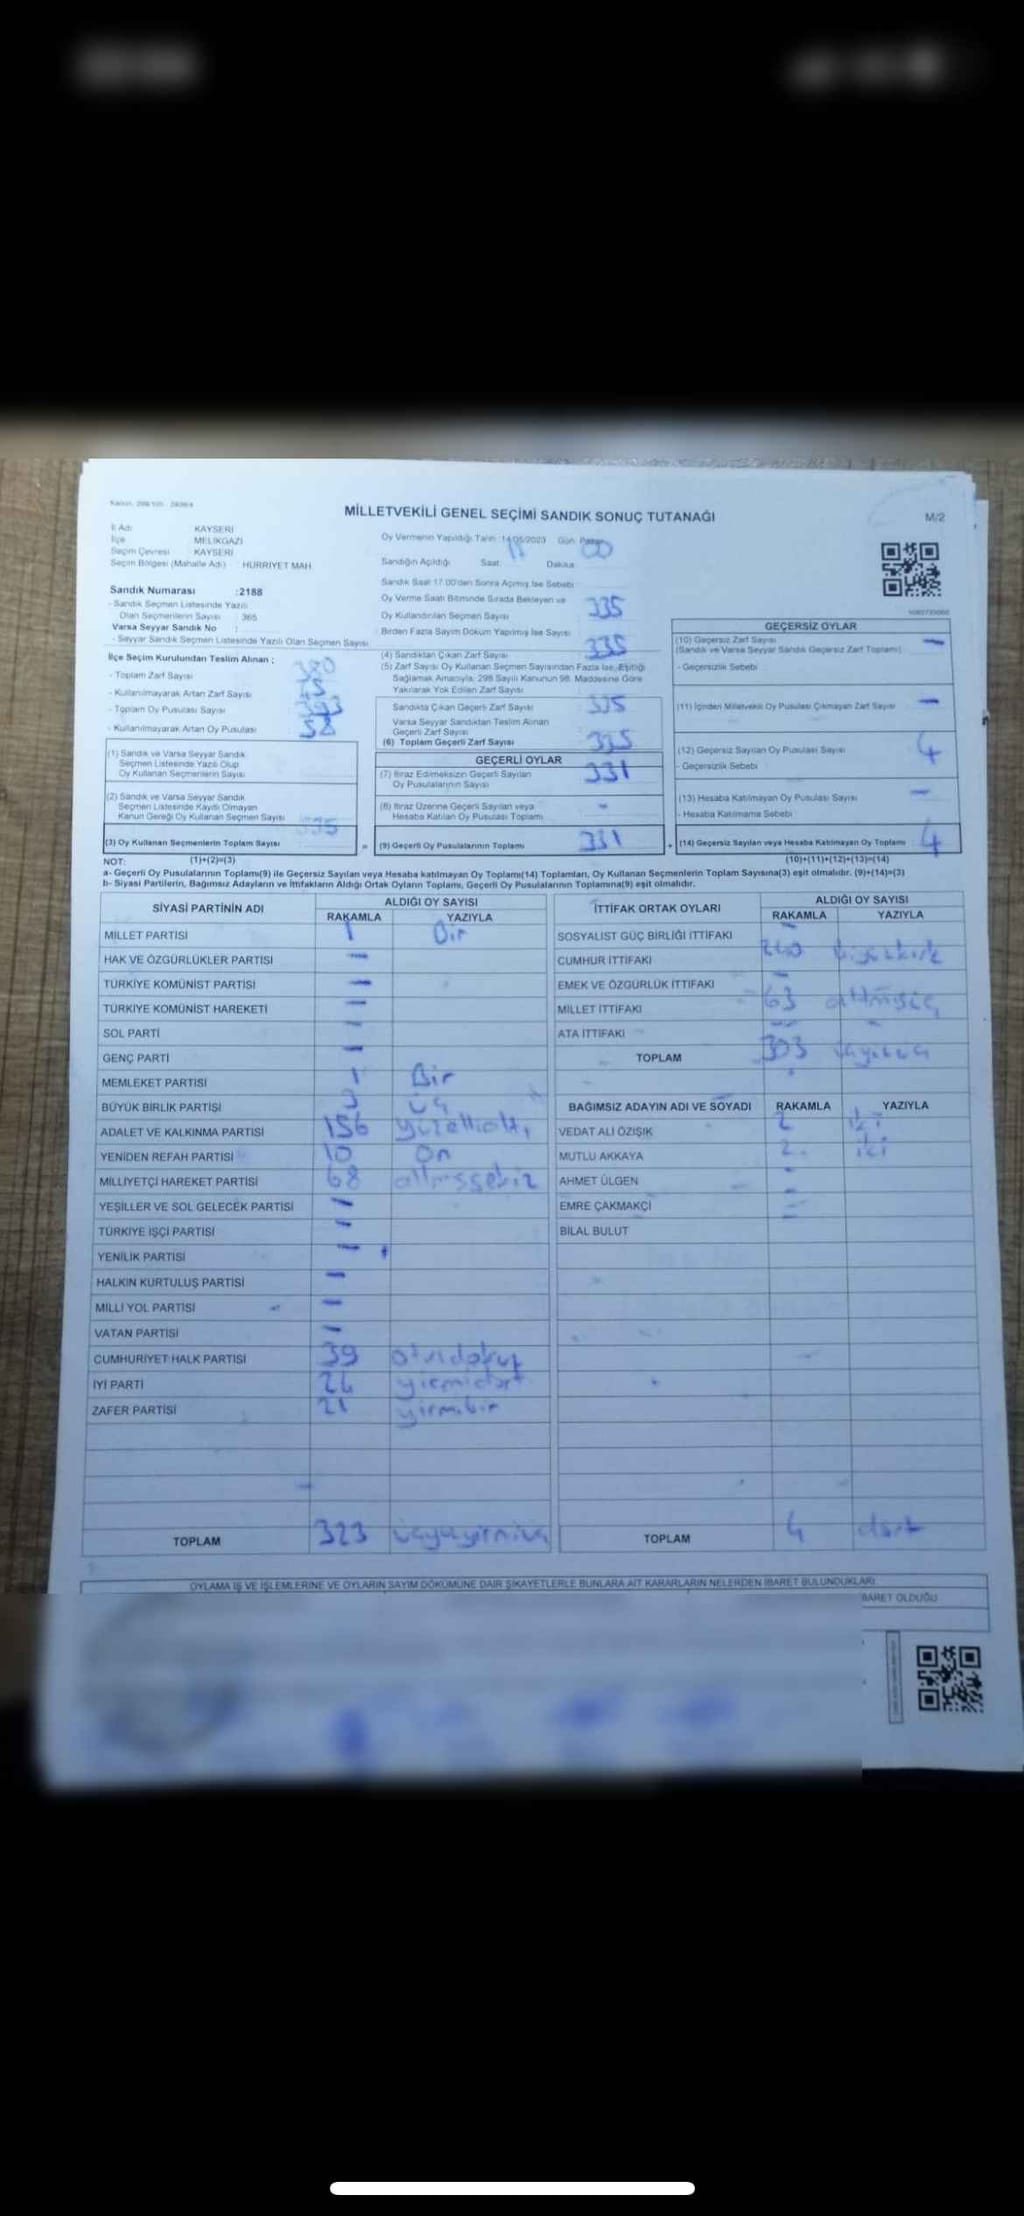 MİLLETVEKİLİ GENEL SEÇİMİ SANDIK SONUÇ TUTANAĞI
M/2
İl Adı KAYSERİ
İlçe MELİKGAZİ
Seçim Çevresi KAYSERİ
Seçim Bölgesi (Mahalle Adı) HÜRRİYET MAH
Sandık Numarası :2188
- Sandık Seçmen Listesinde Yazılı
Olan Seçmenlerin Sayısı 365
Varsa Seyyar Sandık No :
- Seyyar Sandık Seçmen Listesinde Yazılı Olan Seçmen Sayısı
İlçe Seçim Kurulundan Teslim Alınan :
- Toplam Zarf Sayısı 380
- Kullanılmayarak Artan Zarf Sayısı
- Toplam Oy Pusulası Sayısı
- Kullanılmayarak Artan Oy Pusulası 58
(1) Sandık ve Varsa Seyyar Sandık
Seçmen Listesinde Yazılı Olup
Oy Kullanan Seçmenlerin Sayısı
(2) Sandık ve Varsa Seyyar Sandık
Seçmen Listesinde Kayıtlı Olmayan
Kanun Gereği Oy Kullanan Seçmen Sayısı
335
(3) Oy Kullanan Seçmenlerin Toplam Sayısı
Oy Vermenin Yapıldığı Tarih 14/05/2023 Gün Pazar
Sandığın Açıldığı Saat Dakika 00
Sandık Saat 17.00'den Sonra Açılmış İse Sebebi
Oy Verme Saati Bitiminde Sırada Bekleyen ve
Oy Kullandırılan Seçmen Sayısı 335
Birden Fazla Sayım Döküm Yapılmış İse Sayısı
(4) Sandıktan Çıkan Zarf Sayısı 335
(5) Zarf Sayısı Oy Kullanan Seçmen Sayısından Fazla İse, Eşitliği
Sağlamak Amacıyla, 298 Sayılı Kanunun 98. Maddesine Göre
Yakılarak Yok Edilen Zarf Sayısı
Sandıkta Çıkan Geçerli Zarf Sayısı 335
Varsa Seyyar Sandıktan Teslim Alınan
Geçerli Zarf Sayısı
(6) Toplam Geçerli Zarf Sayısı 335
GEÇERLİ OYLAR
(7) İtiraz Edilmeksizin Geçerli Sayılan
Oy Pusulalarının Sayısı 331
(8) İtiraz Üzerine Geçerli Sayılan veya
Hesaba Katılan Oy Pusulası Toplamı -
= (9) Geçerli Oy Pusulalarının Toplamı 331
GEÇERSİZ OYLAR
(10) Geçersiz Zarf Sayısı -
(Sandık ve Varsa Seyyar Sandık Geçersiz Zarf Toplamı)
- Geçersizlik Sebebi
(11) İçinden Milletvekili Oy Pusulası Çıkmayan Zarf Sayısı -
(12) Geçersiz Sayılan Oy Pusulası Sayısı 4
- Geçersizlik Sebebi
(13) Hesaba Katılmayan Oy Pusulası Sayısı -
- Hesaba Katılmama Sebebi
+ (14) Geçersiz Sayılan veya Hesaba Katılmayan Oy Toplamı 4
NOT: (1)+(2)=(3) (10)+(11)+(12)+(13)=(14)
a- Geçerli Oy Pusulalarının Toplamı(9) ile Geçersiz Sayılan veya Hesaba katılmayan Oy Toplamı(14) Toplamları, Oy Kullanan Seçmenlerin Toplam Sayısına(3) eşit olmalıdır. (9)+(14)=(3)
b- Siyasi Partilerin, Bağımsız Adayların ve İttifakların Aldığı Ortak Oyların Toplamı, Geçerli Oy Pusulalarının Toplamına(9) eşit olmalıdır.
SİYASİ PARTİNİN ADI ALDIĞI OY SAYISI
RAKAMLA YAZIYLA
MİLLET PARTİSİ 1 Bir
HAK VE ÖZGÜRLÜKLER PARTİSİ -
TÜRKİYE KOMÜNİST PARTİSİ -
TÜRKİYE KOMÜNİST HAREKETİ -
SOL PARTİ -
GENÇ PARTİ -
MEMLEKET PARTİSİ 1 Bir
BÜYÜK BİRLİK PARTİSİ 3 üç
ADALET VE KALKINMA PARTİSİ 156 yüzellialtı
YENİDEN REFAH PARTİSİ 10 On
MİLLİYETÇİ HAREKET PARTİSİ 68 altmışsekiz
YEŞİLLER VE SOL GELECEK PARTİSİ -
TÜRKİYE İŞÇİ PARTİSİ -
YENİLİK PARTİSİ -
HALKIN KURTULUŞ PARTİSİ -
MİLLİ YOL PARTİSİ -
VATAN PARTİSİ -
CUMHURİYET HALK PARTİSİ 39 otuzdokuz
İYİ PARTİ 24 yirmidört
ZAFER PARTİSİ 21 yirmibir
TOPLAM 323 üçyüzyirmiüç
İTTİFAK ORTAK OYLARI ALDIĞI OY SAYISI
RAKAMLA YAZIYLA
SOSYALİST GÜÇ BİRLİĞİ İTTİFAKI -
CUMHUR İTTİFAKI
EMEK VE ÖZGÜRLÜK İTTİFAKI -
MİLLET İTTİFAKI 63 altmışüç
ATA İTTİFAKI -
TOPLAM 303
BAĞIMSIZ ADAYIN ADI VE SOYADI RAKAMLA YAZIYLA
VEDAT ALİ ÖZIŞIK 2 iki
MUTLU AKKAYA 2 iki
AHMET ÜLGEN -
EMRE ÇAKMAKÇI -
BİLAL BULUT
TOPLAM 4 dört
OYLAMA İŞ VE İŞLEMLERİNE VE OYLARIN SAYIM DÖKÜMÜNE DAİR ŞİKAYETLERLE BUNLARA AİT KARARLARIN NELERDEN İBARET BULUNDUKLARI
BARET OLDUĞU